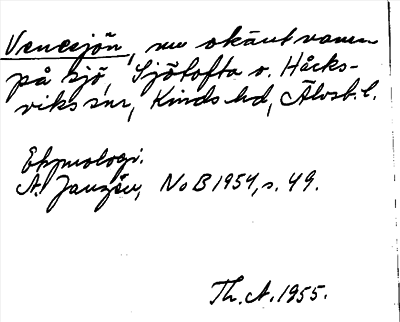 Venesjön, nu okänt namn
på sjö, Sjötofta o. Håcks-
viks snr, Kinds hd, Älvsb. l.
Etymologi.
A. Janzén, NoB 1954, s. 49.
Th. A. 1955.